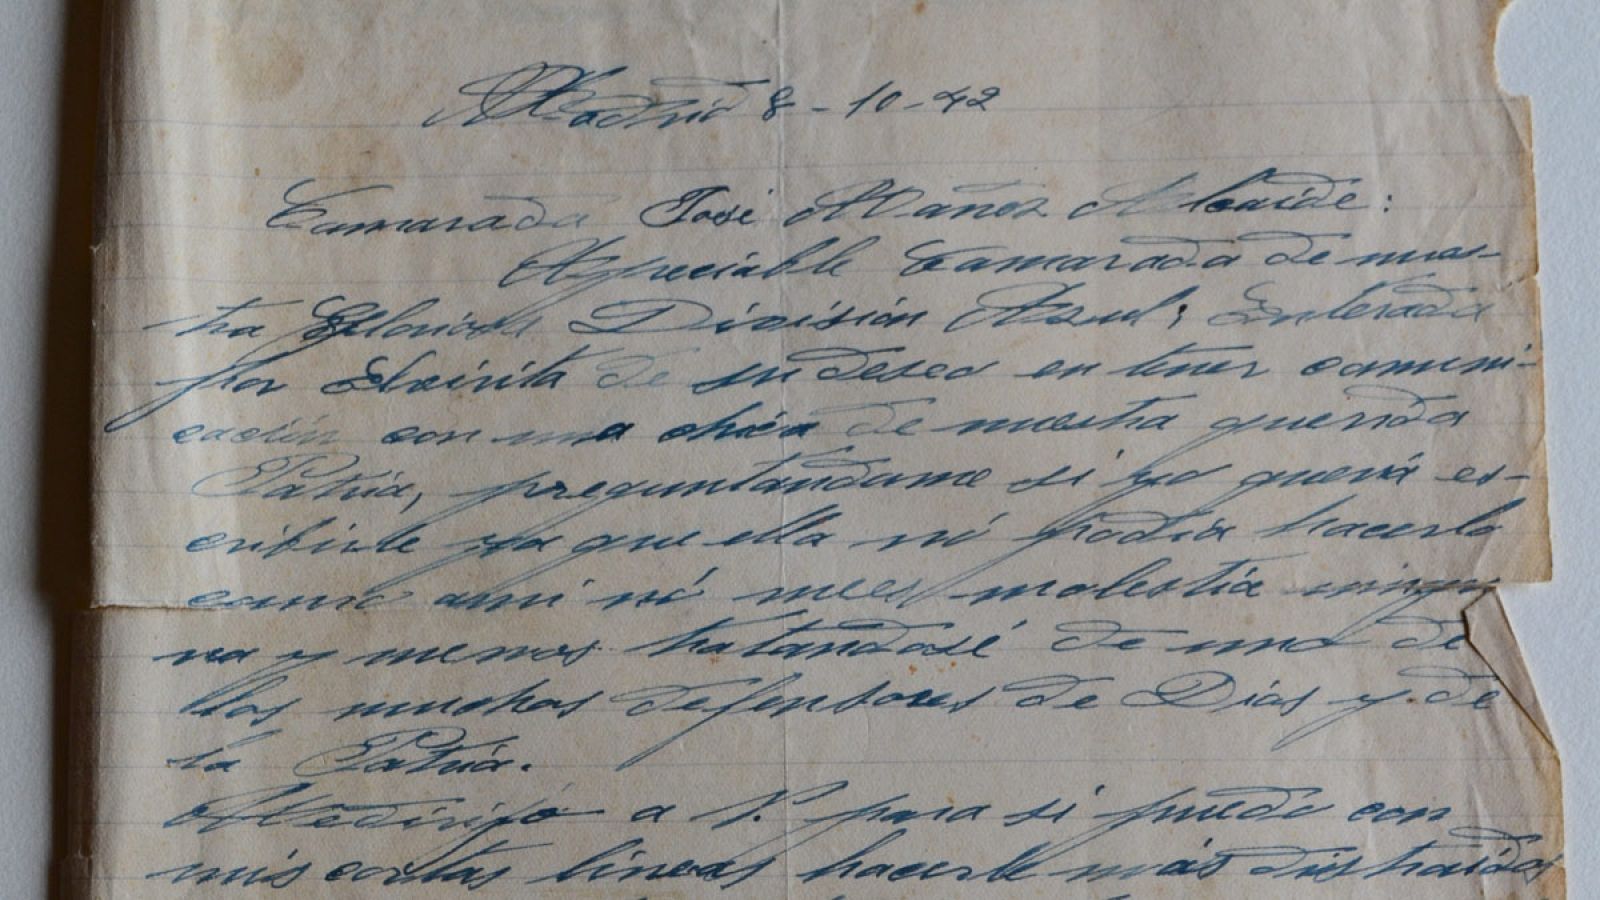 Madrid 8-10-42
Camarada José Mañoz Alcaide:
Apreciable Camarada de nues-
tra Gloriosa División Azul; Enterada
por Elvirita de su deseo en tener comuni-
cación con una chica de nuestra querida
Patria, preguntandome si yo queria es-
cribirle ya que ella no podia hacerlo
como ami nó me es molestia ningu
na y menos tratandosé de uno de
llos muchos defensores de Dios y de
la Patria.
Medirijo a V. para si puedo con
mis cortas líneas hacerle más distraidos